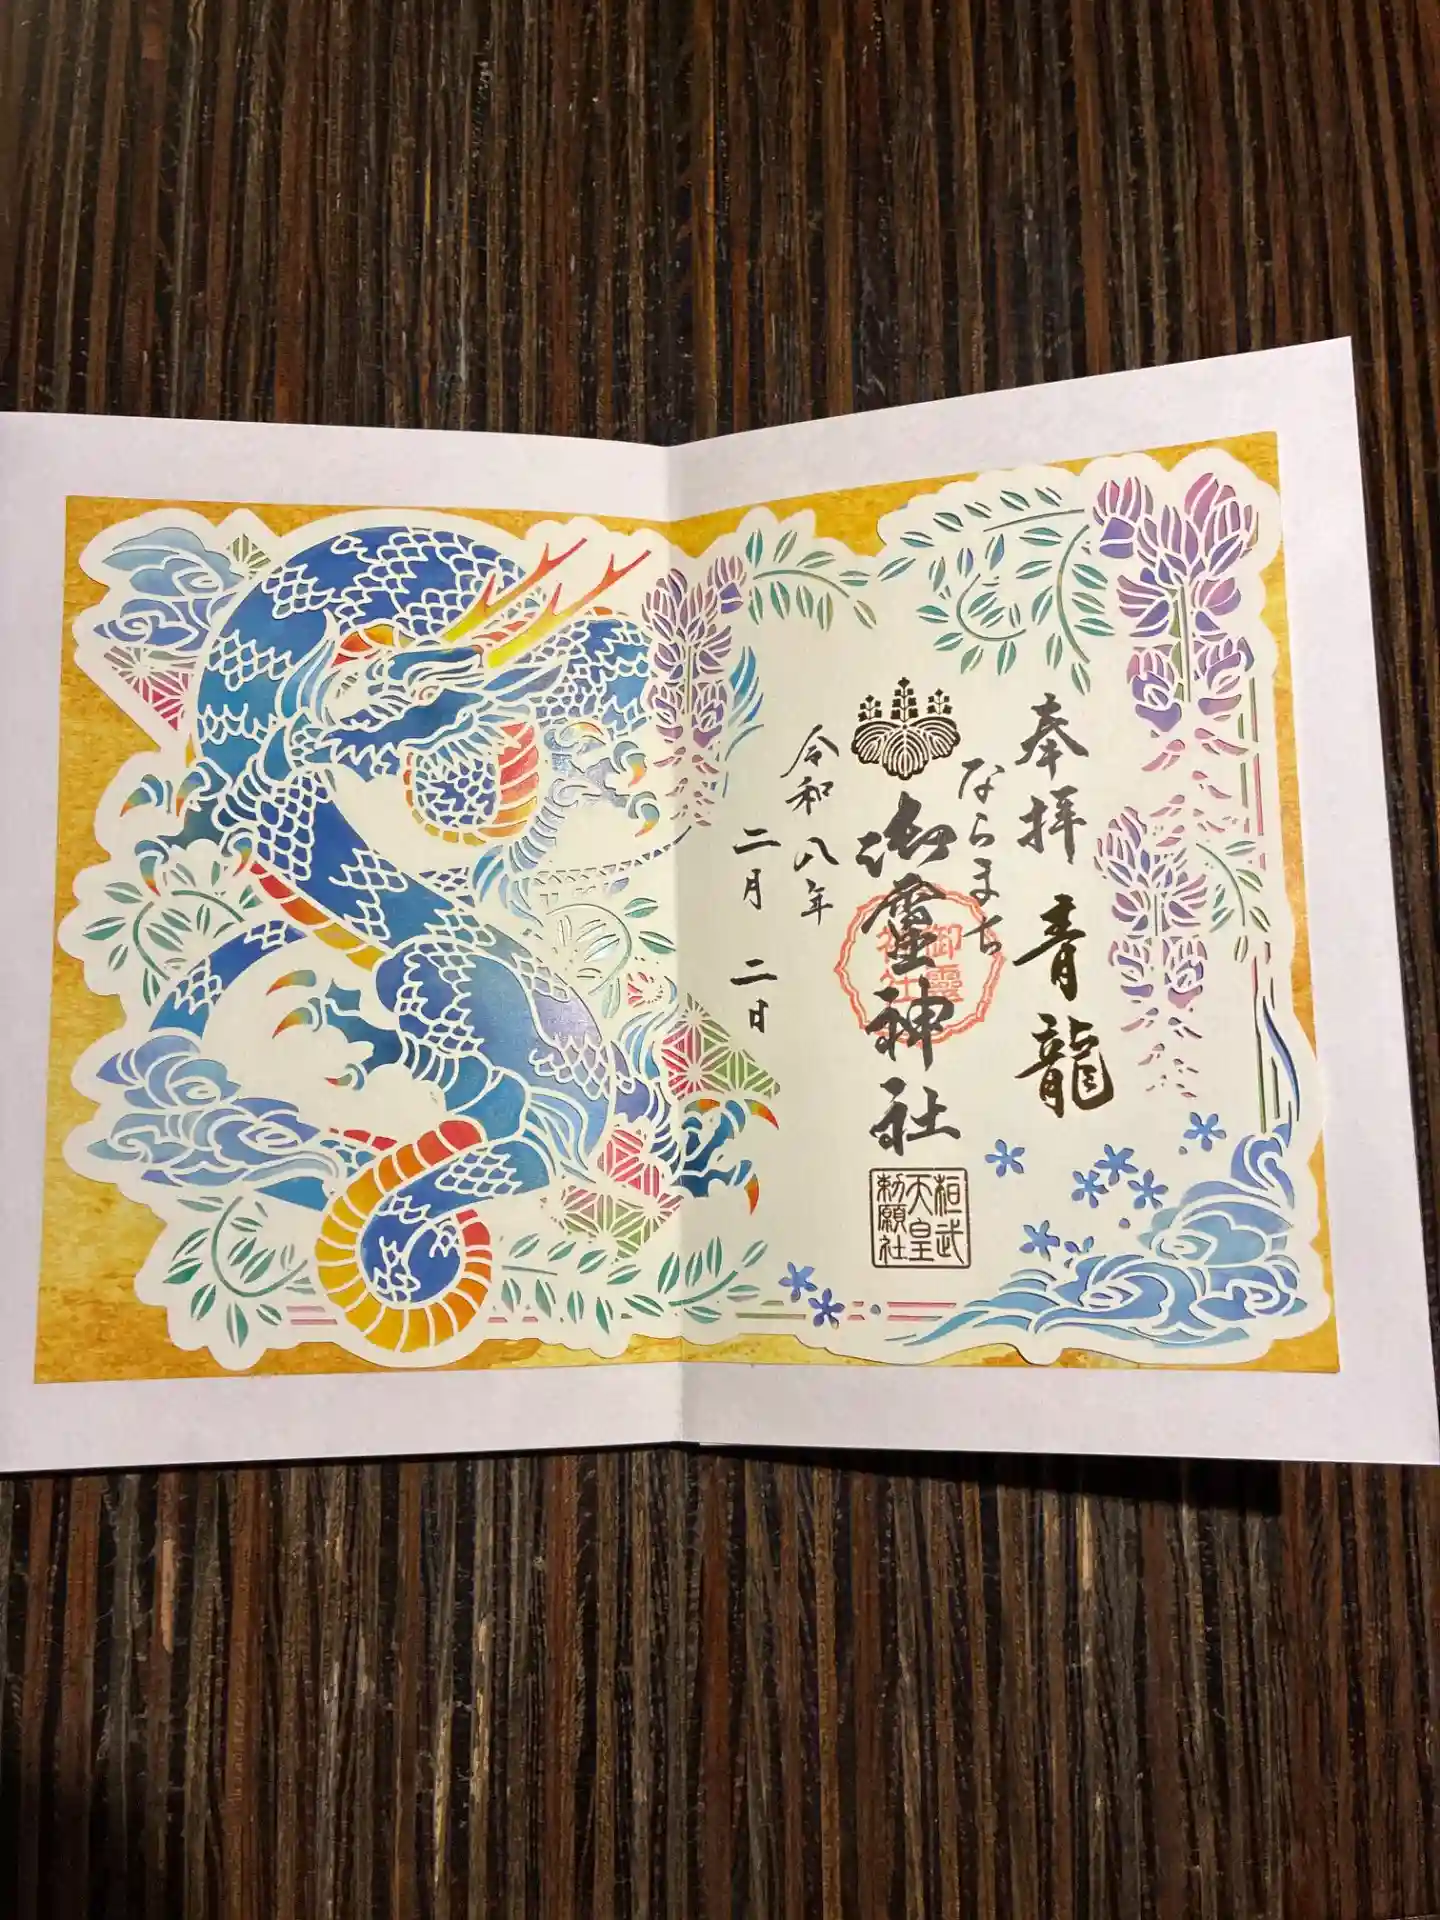 奉拝 青龍
ならまち
御霊神社
御霊神社
桓武
天皇
勅願社
令和八年
二月 二日